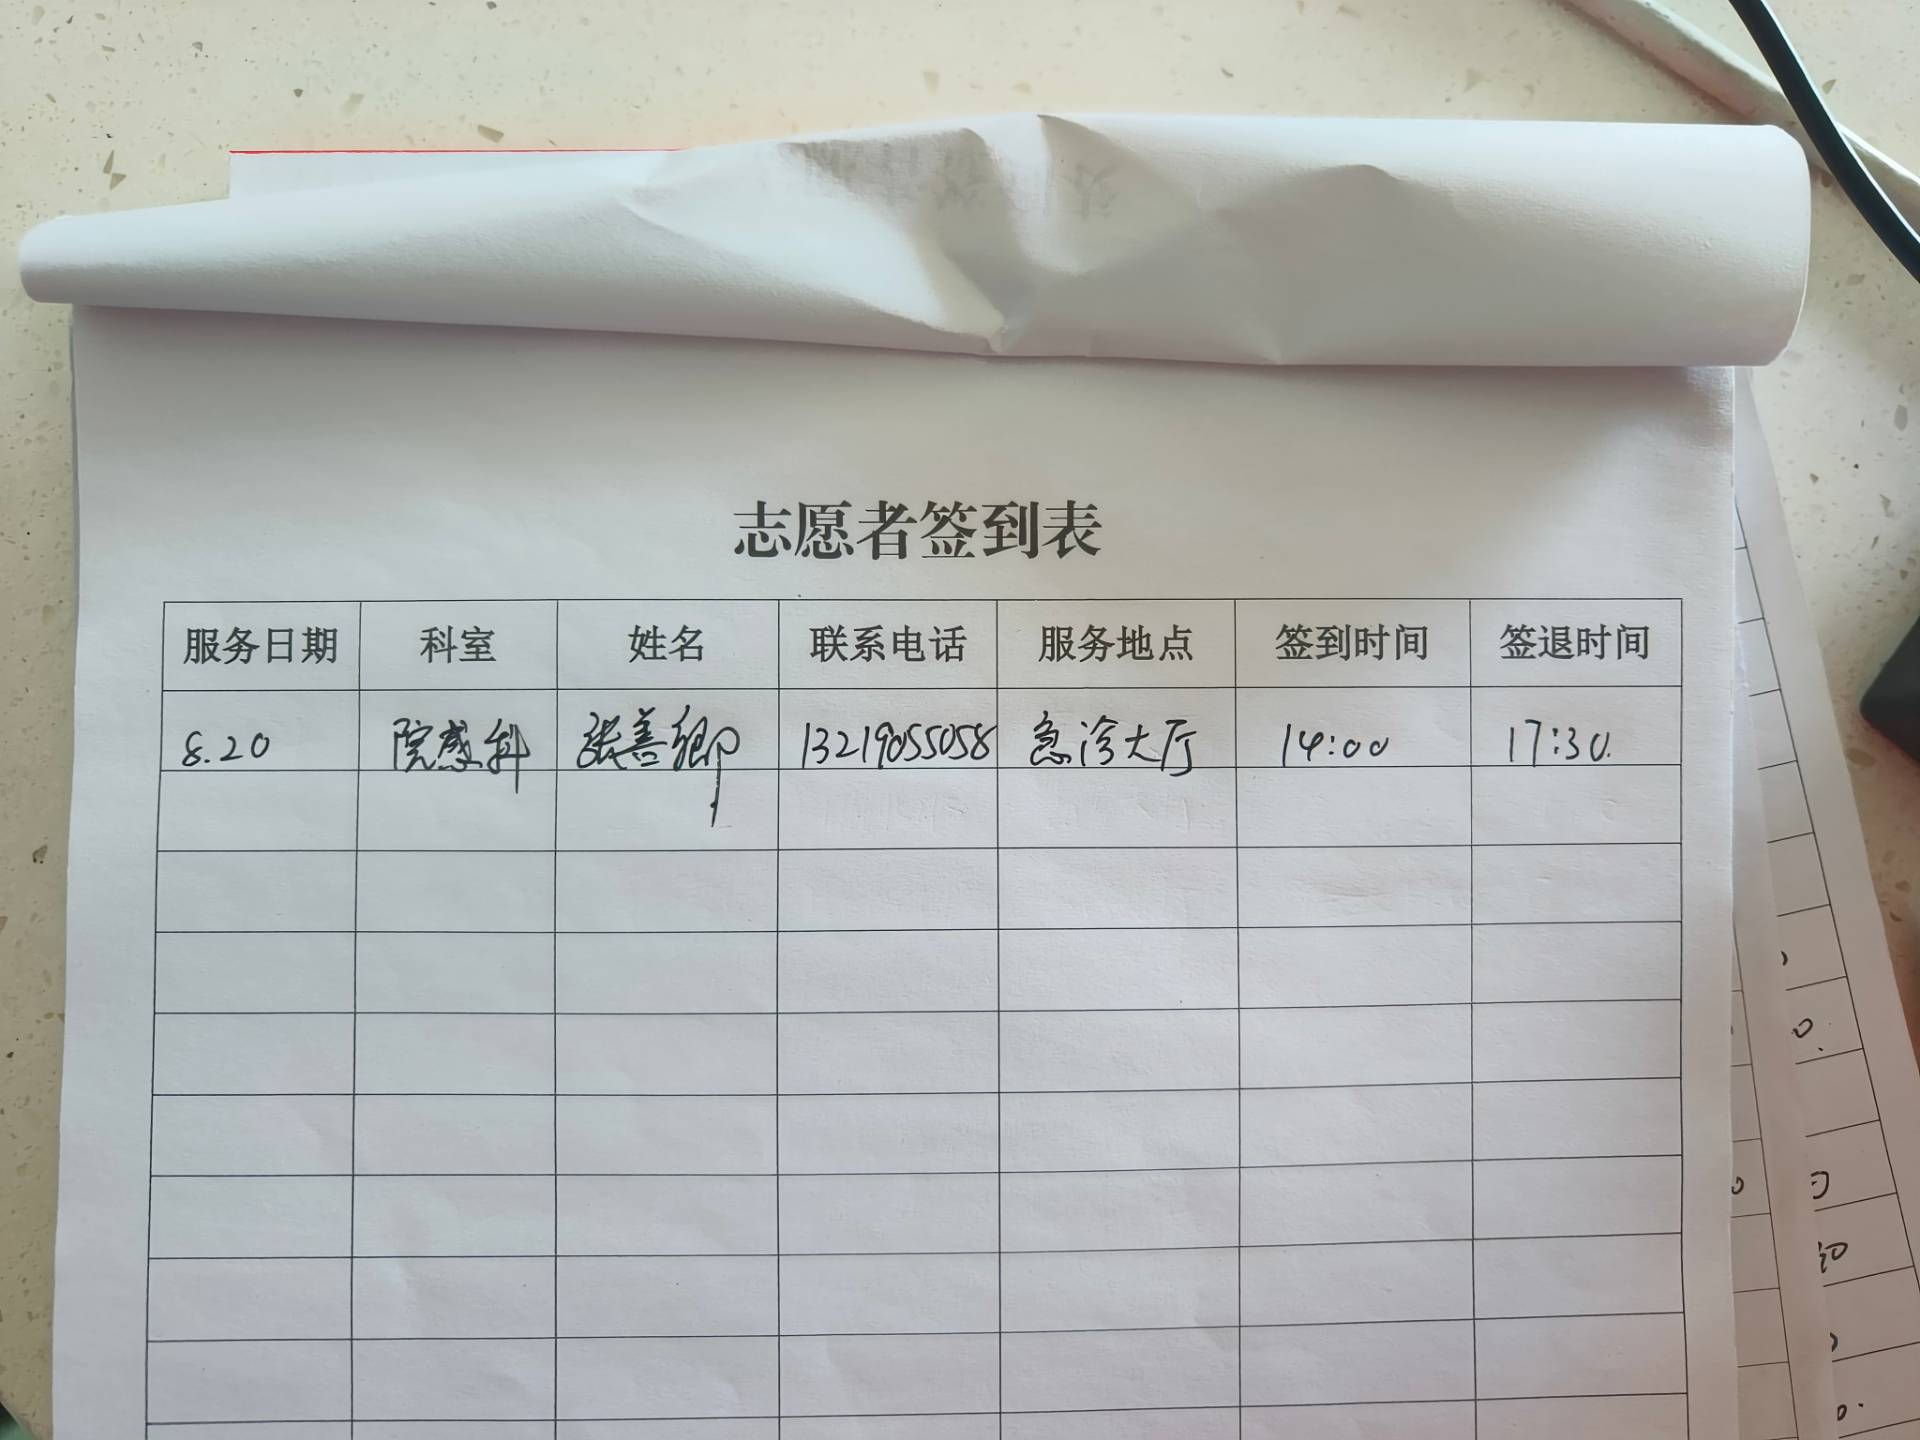 志愿者签到表
服务日期 科室 姓名 联系电话 服务地点 签到时间 签退时间
8.20 院感科 张善卿 13219055058 急诊大厅 14:00 17:30.